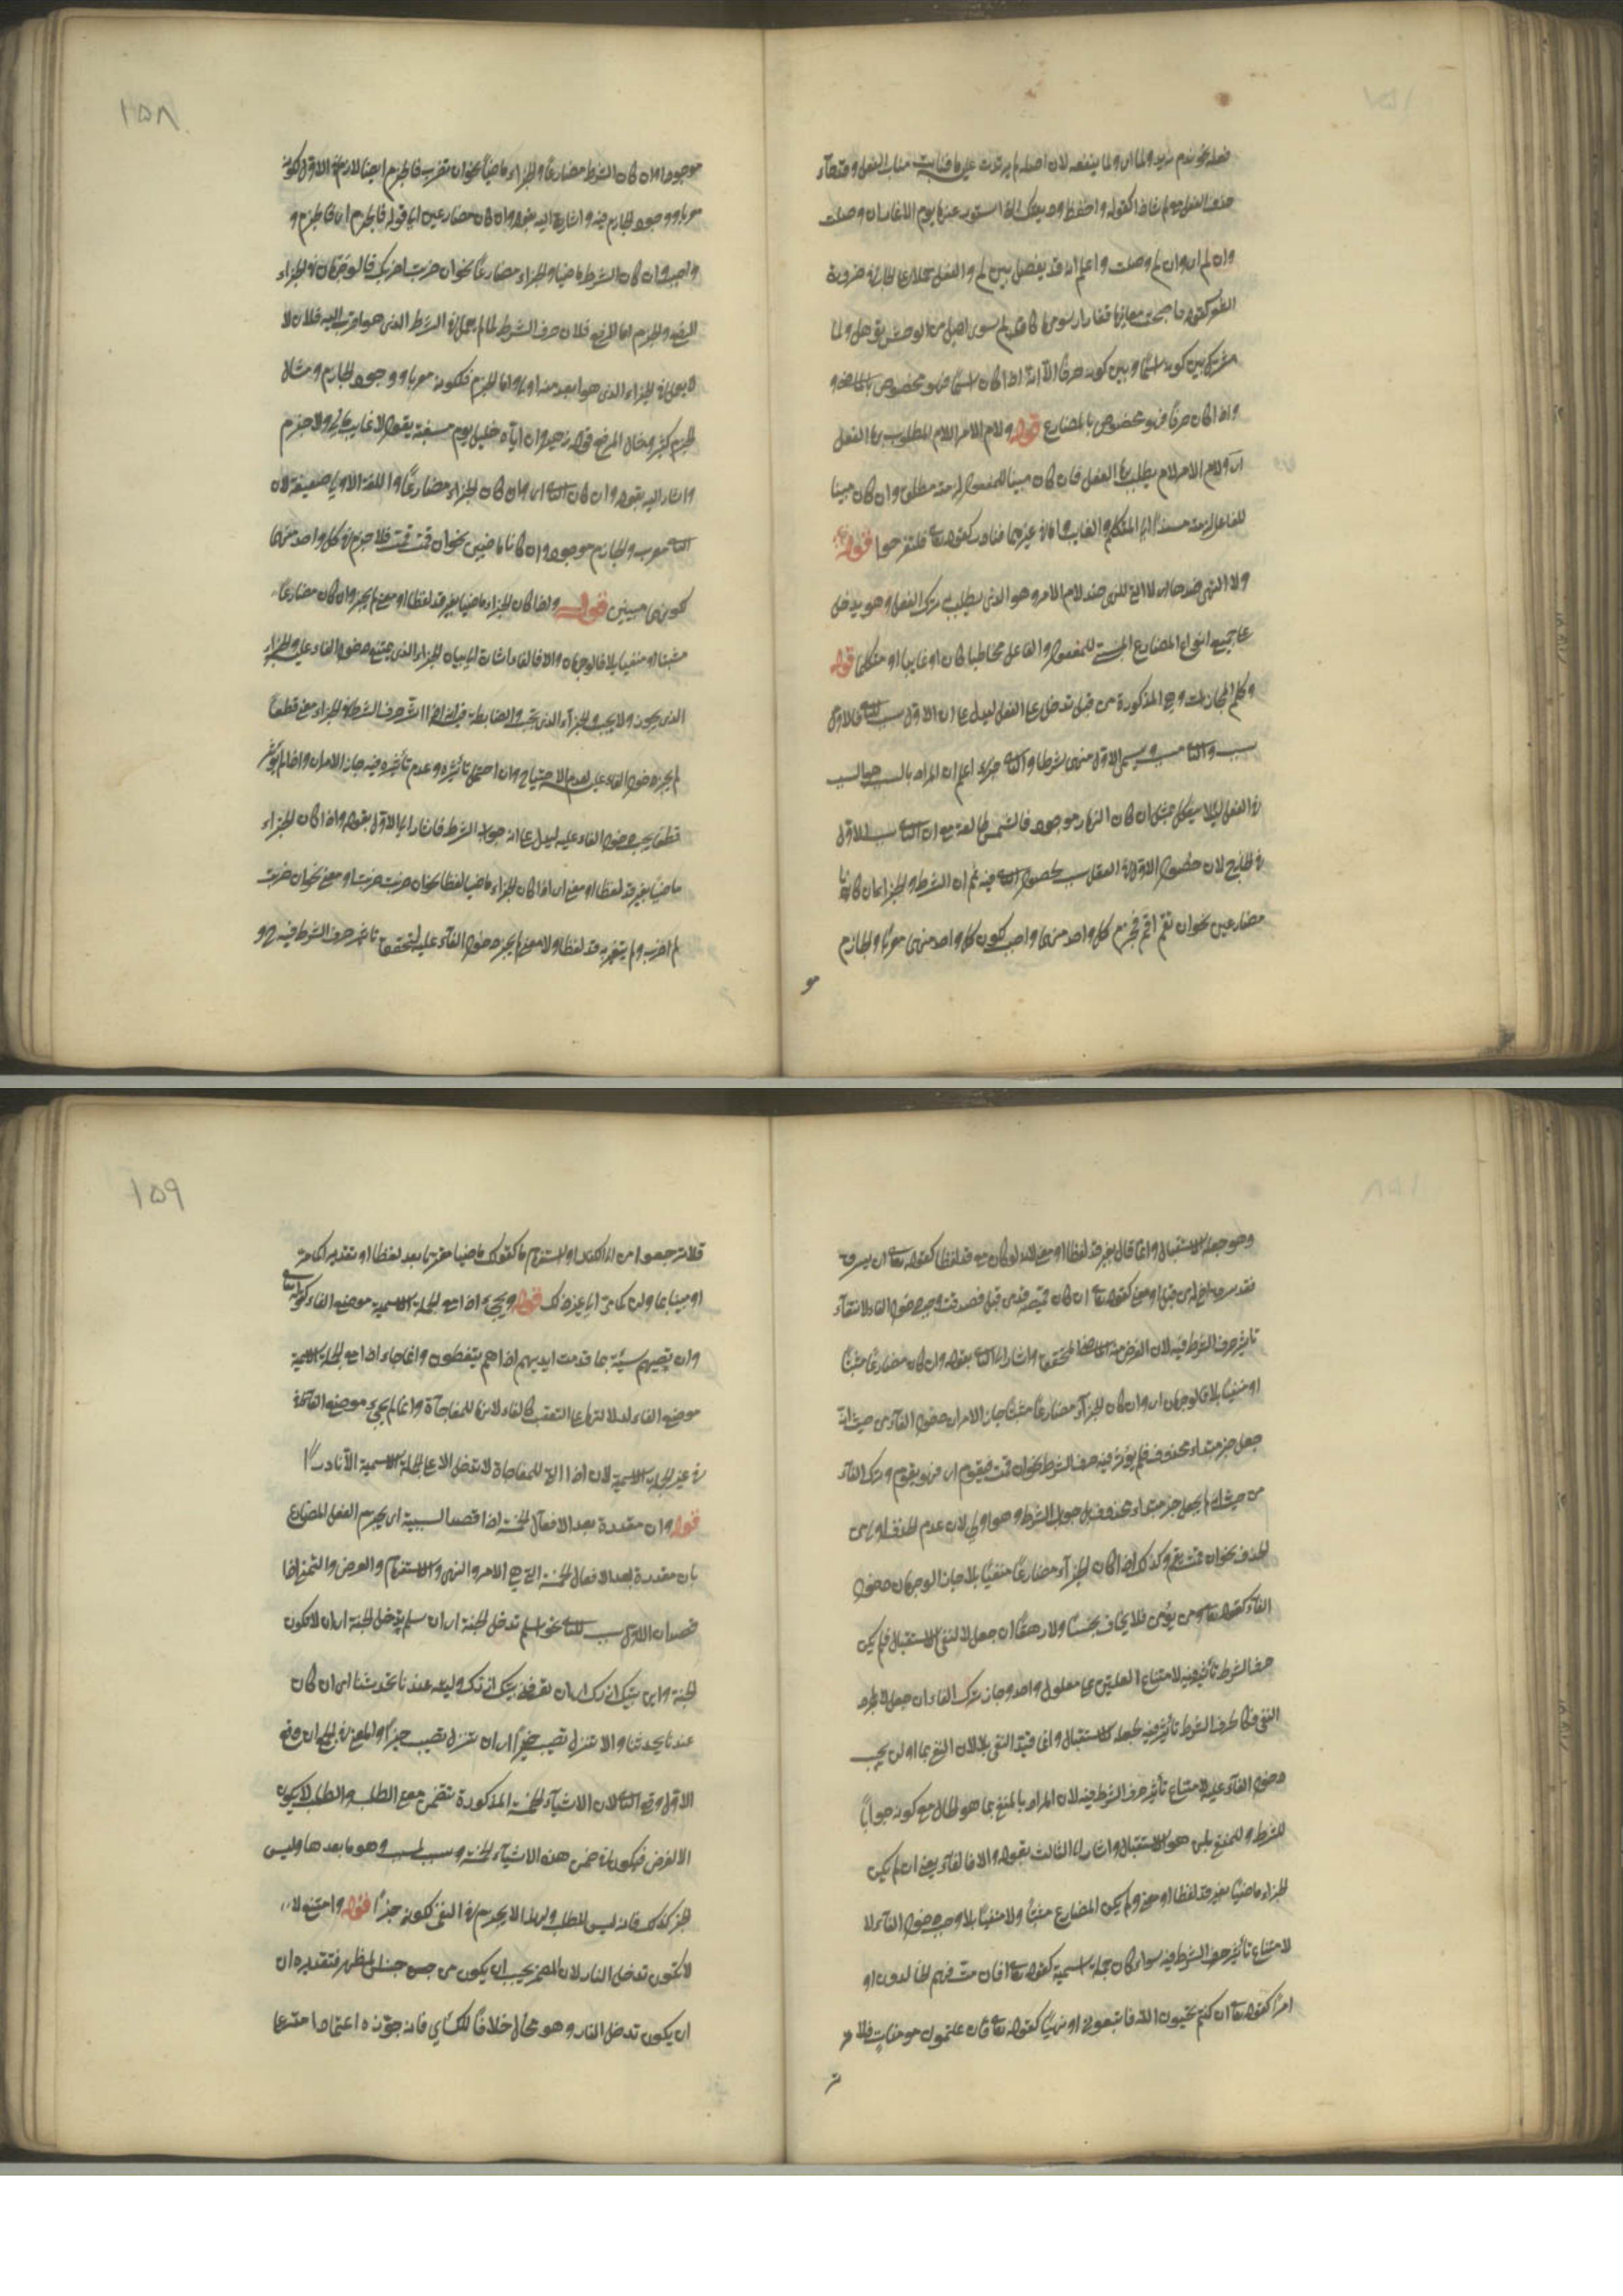 فعله نحو ندم زيد ولما اى ولما ينفعه لان اصله لم يرتدت عليه ما فنابت مناب الفعل وقد جاء
حذف الفعل مع لم شاذا كقوله واحفظ وديعتك التى استودعتها يوم الاعازب ان وصلت
وان لم اى وان لم وصلت واعلم انه قد يفصل بين لم والفعل بحلاف الجازم ضرورة
الشعر كقوله فاضحت مغانيها قفارا رسومها كان لم سوى اهل من الوحش تؤهل ولما
مشترك بين كونه اسمًا وبين كونه حرفًا الا انه اذا كان اسمًا فهو مخصوص بالماضى و
واذا كان حرفًا فهو مخصوص بالمضارع قوله ولام الامر اللام المطلوب بها الفعل
اى ولام الامر لام يطلب بها الفعل فان كان مبينا للمفعول لزمته مطلقا وان كان مبينا
للفاعل لزمته مسندًا الى المتكلم والغايب واما فى غيرهما فنادر كقوله تعالى فلتفرحوا قوله
ولا النهى ضدها اى لا التى للنهى ضد لام الامر وهو الذى يطلب بها ترك الفعل وهو يدخل
على جميع انواع المضارع المبنى للمفعول والفاعل مخاطبا كان او غايبا او متكلما قوله
وكلم المجازات وهى المذكورة من قبل تدخل على الفعل ليدل على ان الاول سبب للثانى فالاول
سبب والثانى مسبب ويسمى الاول منهما شرطا والثانى جزاء اعلم ان المراد بالسبب هو السبب
فى العقل لئلا يشكل بمثل ان كان النهار موجودا فالشمس طالعة مع ان الثانى سبب الاول
فى الخارج لان حصول الاول فى العقل سبب لحصول الثانى فيه ثم ان الشرط والجزاء ان كانا
مضارعين نحو ان تقم اقم فجزم كل واحد منهما واجب لكون كل واحد منهما معربًا والجازم
مو
١٥٨
موجودا وان كان الشرط مضارعًا والجزاء ماضيًا نحو ان تضرب فالجزم ايضا لازم فى الاول لكونه
معربا ووجود الجازم فيه واشار اليه بقوله وان كان مضارعين او الاول فالجزم اى فالجزم و
واجب وان كان الشرط ماضيا والجزاء مضارعًا نحو ان ضربت اضربك فالوجهان فى الجزاء
الرفع والجزم اما الرفع فلان حرف الشرط لما لم يعمل فى الشرط الذى هو اقرب اليه فلان لا
يعمل فى الجزاء الذى هو ابعد منه اولى واما الجزم فلكونه معربا ووجود الجازم ومثال
الجزم كثير ومثال الرفع قول زهير وان اتاه خليل يوم مسغبة يقول لا غايب مالى ولا حرم
واشار اليه بقوله وان كان الثانى اى وان كان الجزاء مضارعًا واللغة الاولى ضعيفة لان
الثانى معرب والجازم موجود وان كانا ماضيين نحو ان قمت قمت فلا جزم فى كل واحد منهما
لكونهما مبنيين قوله واذا كان الجزاء ماضيا بغير قد لفظا او معنى لم يجز وان كان مضارعًا
مثبتا او منفيا بلا فالوجهان والا فالفاء اشارة الى بيان الجزاء الذى يمتنع دخول الفاء عليه والجزاء
الذى يجوز ولا يجب والجزآء الذى يجب والضابطة فيه انه اذا اثر حرف الشرط فى الجزاء معنى قطعًا
لم يجز دخول الفاء عليه لعدم الاحتياج وان احتمل تأثيره وعدم تأثيره فيه جاز الامران واذا لم يؤثر
قطعا يجب دخول الفاء عليه ليدل على انه جواب الشرط فاشار الى الاول بقوله واذا كان الجزاء
ماضيًا بغير قد لفظا او معنى اى اذا كان الجزاء ماضيا لفظا نحو ان ضربت ضربت او معنى نحو ان ضربت
لم اضرب ولم يتغير به قد لفظا ولا معنى لم يجز دخول الفآء عليه لتحقق تاثير حرف الشرط فيه و
وهو جعله للاستقبال وانما قال بغير قد لفظا او معنى لانه لو كان مع قد لفظا كقوله تعالى ان يسرق
فقد سرق اخ له من قبل او معنى كقوله تعالى ان كان قميصه قد من قبل فصدقت وجب دخول الفاء لانتفآء
تاثير حرف الشرط فيه لان الغرض منه المحقق واشار الى الثانى بقوله وان كان مضارعًا مثبتًا
او منفيًا بلا فالوجهان اى وان كان الجزآء مضارعًا مثبتًا جاز الامران دخول الفآء من حيث انه
جعل خبر مبتداء محذوف فلم يؤثر فيه حرف الشرط نحو ان قمت فيقوم اى فهو يقوم وترك الفآء
من حيث انه لم يجعل خبر مبتداء محذوف بل جواب الشرط وهو اولى لان عدم الحذف اولى من
الحذف نحو ان قمت يقم وكذلك اذا كان الجزآء مضارعًا منفيًا بلا جاز الوجهان دخول
الفآء كقوله تعالى ومن يؤمن فلا يخاف بخسًا ولا رهقًا ان جعل لا لنفى الاستقبال فلم يكن
حرف الشرط تأثير فيه لامتناع العلتين على معلول واحد وجاز ترك الفاء ان جعل لا لمجرد
النفى فكان لحرف الشرط تأثير فيه لجعله للاستقبال وانما قيد النفى بلا لان النفى بما او لن يجب
دخول الفآء عليه لامتناع تأثير حرف الشرط فيه لان المراد بالمنفى بما هو الحال مع كونه جوابًا
للشرط والمنفى بلن هو الاستقبال واشار الى الثالث بقوله والا فالفآء يعنى ان لم يكن
الجزاء ماضيًا بغير قد لفظا او معنى ولم يكن المضارع مثبتًا ولا منفيًا بلا وجب دخول الفآء
لامتناع تأثير حرف الشرط فيه سواء كان جملة اسمية كقوله تعالى افان مت فهم الخالدون او
امرًا كقوله تعالى ان كنتم تحبون الله فاتبعونى او نهيًا كقوله تعالى فان علمتموهن مومنات فلا تر
تر
١٥٩
فلا ترجعوهن الى الكفار او استفهام كقولك ماضيا لفظا او تقديرا كما مر
او مبينا بما ولن كما مر الى غير ذلك قوله ويجىء اذا مع الجملة الاسمية موضع الفاء كقوله تعالى
وان تصبهم سيئة بما قدمت ايديهم اذا هم يقنطون وانما جاء اذا مع الجملة الاسمية
موضع الفاء لدلالتها على التعقيب كالفاء لانها للمفاجآة وانما لم يجىء موضع الفآء
فى غير الجملة الاسمية لان اذا التى للمفاجاة لا تدخل الا على الجملة الاسمية الا نادرًا
قوله وان مقدرة بعد الافعال الخمسة اذا قصد السببية اى يجزم الفعل المضارع
بان مقدرة بعد الافعال الخمسة التى هى الامر والنهى والاستفهام والعرض والتمنى اذا
قصد ان الاول سبب للثانى نحو اسلم تدخل الجنة اى ان تسلم تدخل الجنة
الجنة واين بيتك ازرك اى ان تعرفنى بيتك ازرك وليته عندنا يحدثنا اى ان كان
عندنا يحدثنا والا تنزل تصيب خيرًا اى ان تنزل تصيب خيرًا والمعنى فى الجميع ان وقع
الاول وقع الثانى لان الاشيآء الخمسة المذكورة تتضمن معنى الطلب والطلب لا يكون
الا لغرض فيكون ضمن هذه الاشيآء الخمسة سبب لمسبب وهو ما بعدها وليس
الخبر كذلك فانه ليس للطلب ولهذا لا يجزم فى النفى لكونه خبرًا قوله وامتنع لا
لا تكفر تدخل النار لان المضمر يجب ان يكون من جنس المظهر فتقديره ان
ان يكون تدخل النار وهو محال خلافًا للكسائى فانه جوزه اعتمادا على